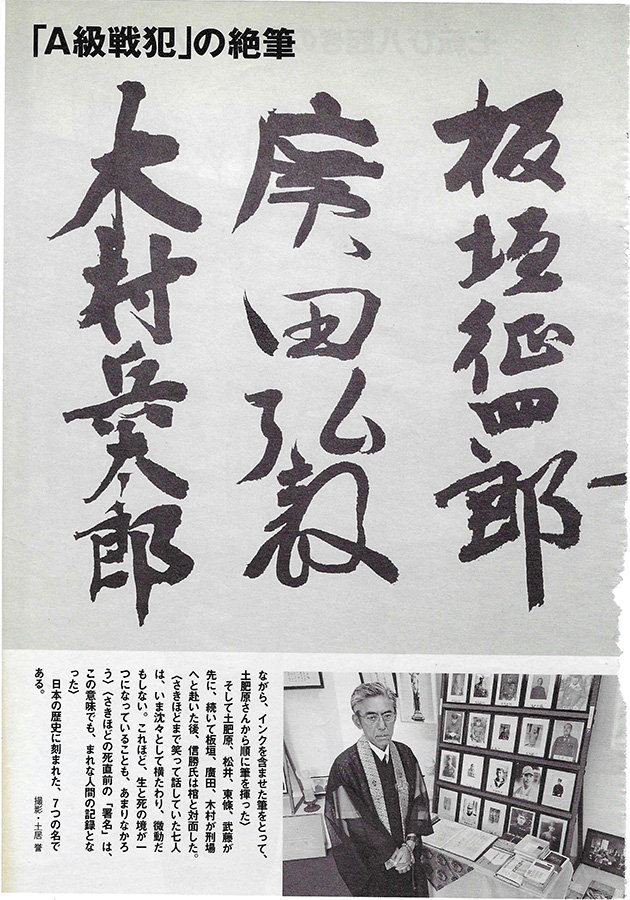 「A級戦犯」の絶筆
板垣征四郎
廣田弘毅
木村兵太郎
ながら、インクを含ませた筆をとって、
土肥原さんから順に筆を揮った〉
　そして土肥原、松井、東條、武藤が
先に、続いて板垣、廣田、木村が刑場
へと赴いた後、信勝氏は棺と対面した。
〈さきほどまで笑って話していた七人
は、いま沈々として横たわり、微動だ
もしない。これほど、生と死の境が一
つになっていることも、あまりなかろ
う〉〈さきほどの死直前の「署名」は、
この意味でも、まれな人間の記録とな
った〉
　日本の歴史に刻まれた、7つの名で
ある。
撮影・土居 誉